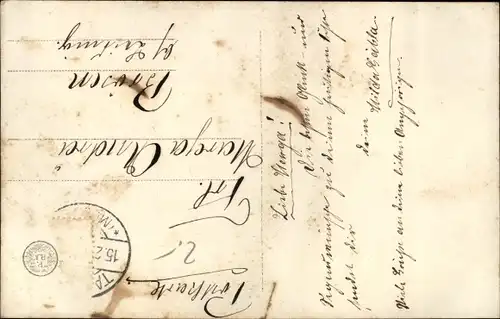 Postkarte
Frl.
Marga André
Brösen
b/ Leisnig.
Liebe Marga!
Die besten Glück- und
Segenswünsche zu deinem heutigen Feste
sendet dir
deine Hilda
Viele Grüße an deine lieben Angehörigen.
15.2
2.-